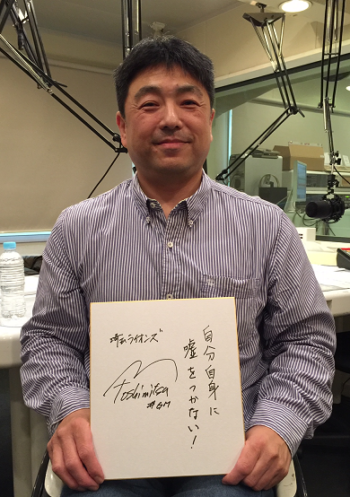 自分自身に
嘘をつかない!
埼玉ライオンズ
Toshimitsu
#GM